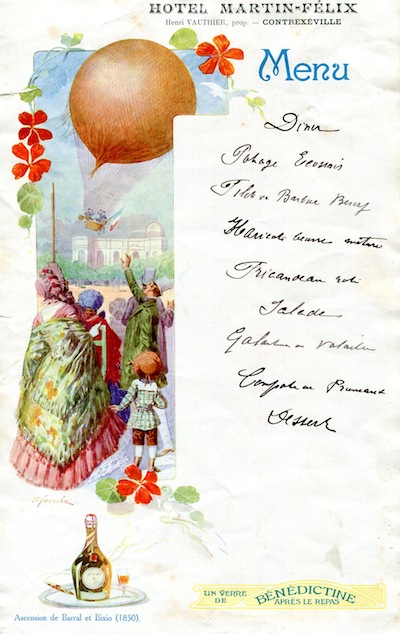 HOTEL MARTIN-FÉLIX
Henri VAUTHIER, prop. — CONTREXÉVILLE
Menu
Diner
Potage Ecossais
Filets de Barbue Bercy
Haricots beurre
Fricandeau roti
Salade
Galantine de Volaille
Compote de Pruneaux
Dessert
UN VERRE DE BÉNÉDICTINE APRÈS LE REPAS
Ascension de Barral et Bixio (1850).